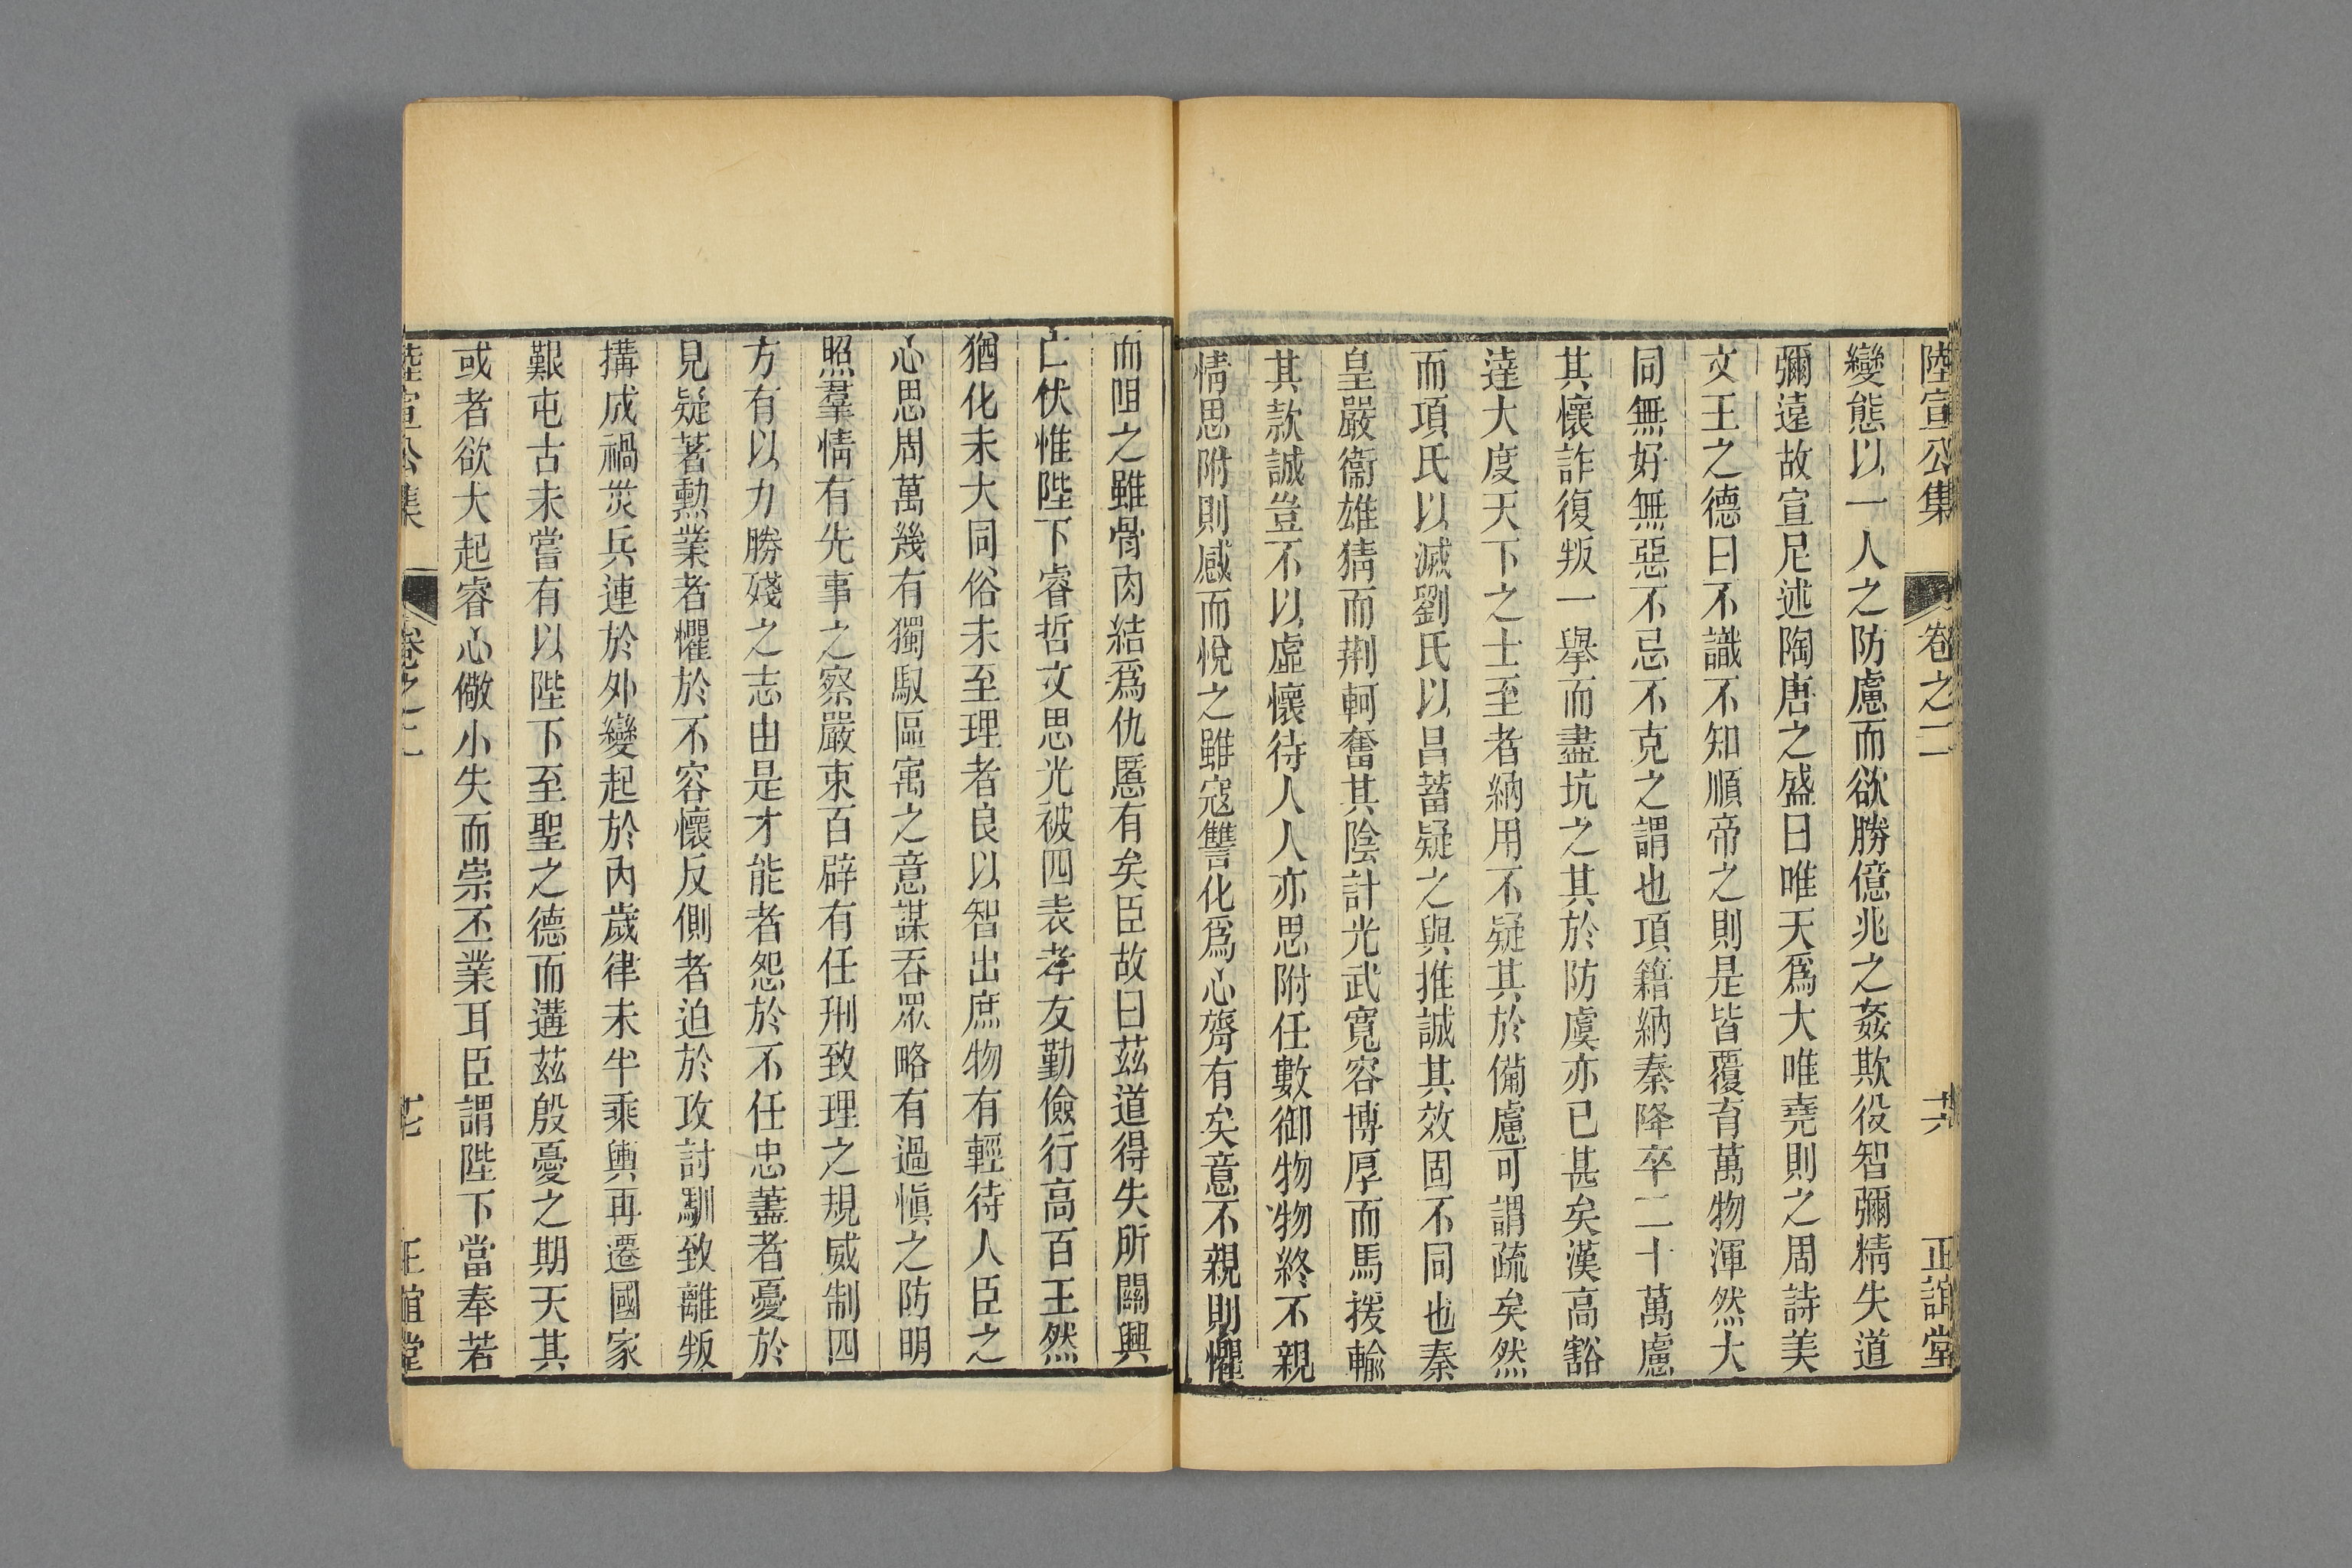 陸宣公集 卷之二 共 正誼堂
變態以一人之防慮而欲勝億兆之姦欺役智彌精失道
彌遠故宣尼述陶唐之盛曰唯天爲大唯堯則之周詩美
文王之德曰不識不知順帝之則是皆覆育萬物渾然大
同無好無惡不忌不克之謂也項籍納秦降卒二十萬慮
其懷詐復叛一擧而盡坑之其於防虞亦已甚矣漢高豁
達大度天下之士至者納用不疑其於備慮可謂疏矣然
而項氏以滅劉氏以昌蓄疑之與推誠其效固不同也秦
皇嚴衞雄猜而荆軻奮其陰計光武寬容博厚而馬援輸
其款誠豈不以虛懷待人人亦思附任數御物物終不親
情思附則感而悅之雖寇讐化爲心膂有矣意不親則懼
而阻之雖骨肉結爲仇慝有矣臣故曰茲道得失所關興
亡伏惟陛下睿哲文思光被四表孝友勤儉行高百王然
猶化未大同俗未至理者良以智出庶物有輕待人臣之
心思周萬幾有獨馭區寓之意謀吞眾略有過愼之防明
照羣情有先事之察嚴束百辟有任刑致理之規威制四
方有以力勝殘之志由是才能者怨於不任忠藎者憂於
見疑著勳業者懼於不容懷反側者迫於攻討馴致離叛
搆成禍災兵連於外變起於內歲律未半乘輿再遷國家
艱屯古未嘗有以陛下至聖之德而遘茲殷憂之期天其
或者欲大起睿心儆小失而崇丕業耳臣謂陛下當奉若
陸宣公集 卷之二 七 正誼堂